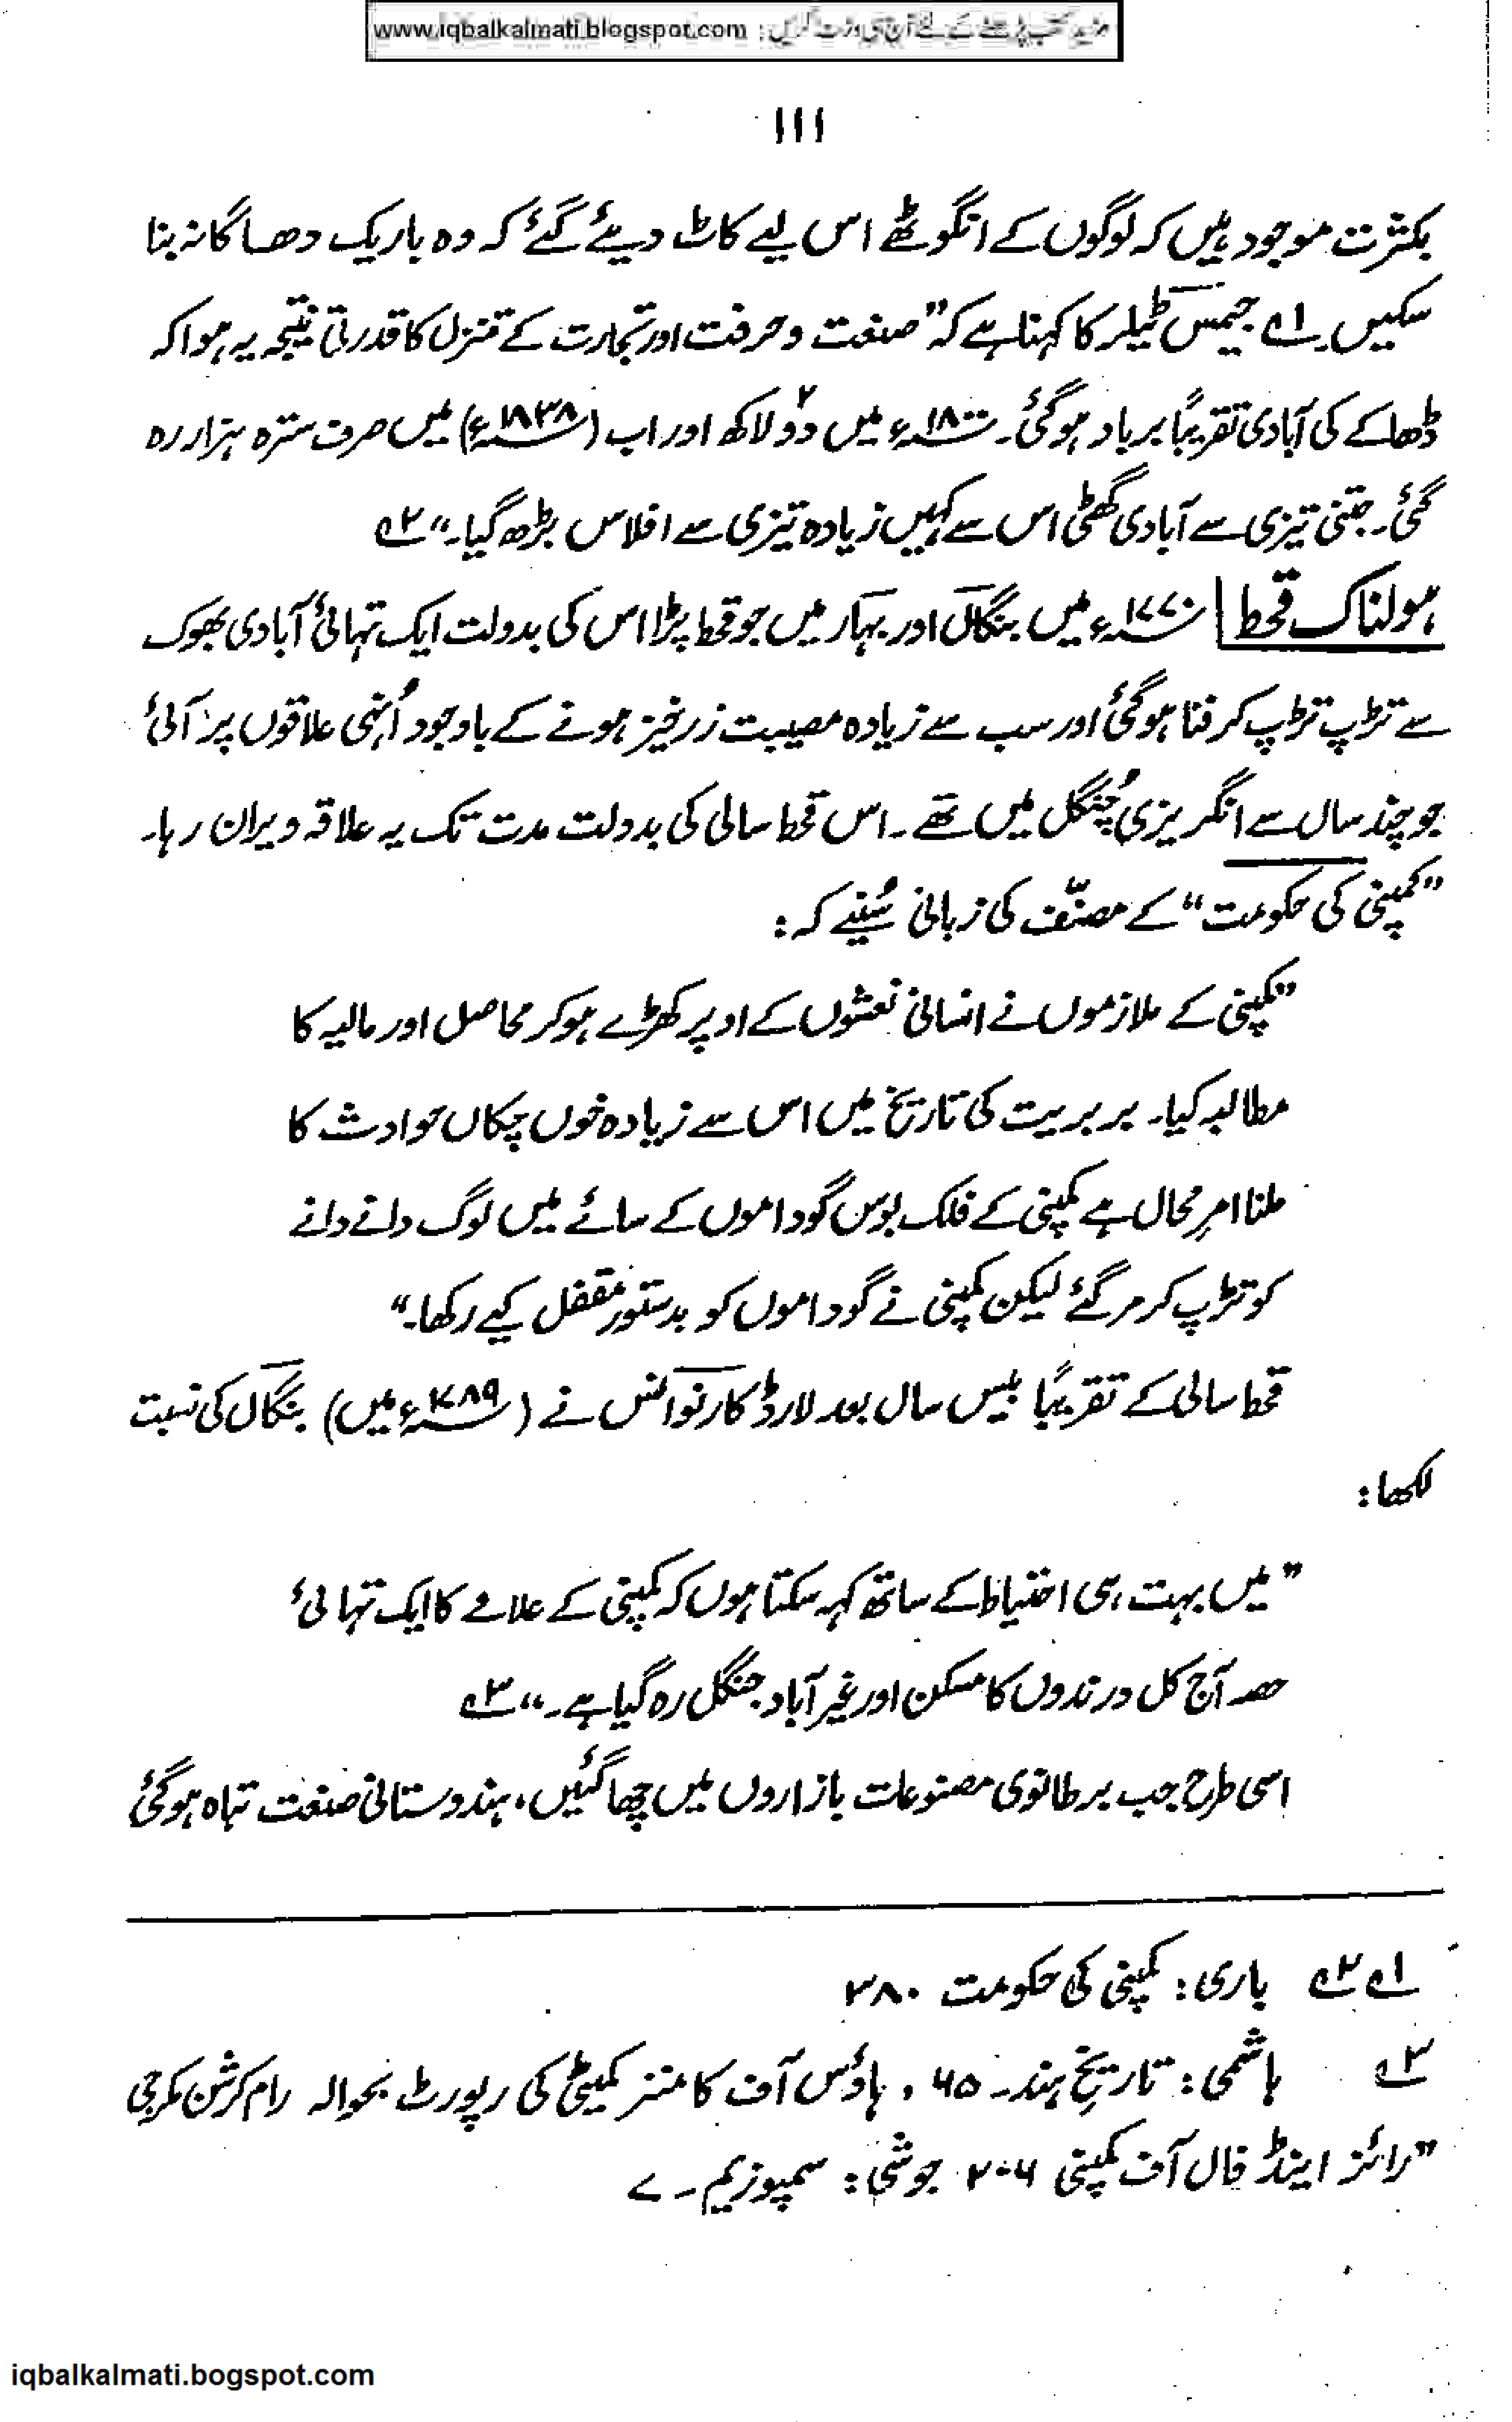 مزید کتب پڑھنے کے لئے آج ہی وزٹ کریں : www.iqbalkalmati.blogspot.com
۱۱۱
بکثرت موجود ہیں کہ لوگوں کے انگوٹھے اس لیے کاٹ دیئے گئے کہ وہ باریک دھاگا نہ بنا
سکیں۔ ۱؎ جیمس ٹیلر کا کہنا ہے کہ ”صنعت و حرفت اور تجارت کے تنزل کا قدرتی نتیجہ یہ ہوا کہ
ڈھاکے کی آبادی تقریباً برباد ہوگئی۔ ۱۸۰۰ء میں دو۲ لاکھ اور اب (۱۸۳۸ء) میں صرف سترہ ہزار رہ
گئی۔ جتنی تیزی سے آبادی گھٹی اس سے کہیں زیادہ تیزی سے افلاس بڑھ گیا۔“ ۲؎
ہولناک قحط | ۱۷۷۰ء میں بنگال اور بہار میں جو قحط پڑا اس کی بدولت ایک تہائی آبادی بھوک
سے تڑپ تڑپ کر فنا ہوگئی اور سب سے زیادہ مصیبت زرخیز ہونے کے باوجود اُنہی علاقوں پر آئی
جو چند سال سے انگریزی چُنگل میں تھے۔ اس قحط سالی کی بدولت مدت تک یہ علاقہ ویران رہا۔
”کمپنی کی حکومت“ کے مصنّف کی زبانی سُنیے کہ :
”کمپنی کے ملازموں نے انسانی نعشوں کے اوپر کھڑے ہوکر محاصل اور مالیہ کا
مطالبہ کیا۔ بربریت کی تاریخ میں اس سے زیادہ خوں چکاں حوادث کا
ملنا امرِ محال ہے کمپنی کے فلک بوس گوداموں کے سائے میں لوگ دانے دانے
کو تڑپ کر مر گئے لیکن کمپنی نے گوداموں کو بدستور مقفل کیے رکھا۔“
قحط سالی کے تقریباً بیس سال بعد لارڈ کارنوالس نے (۱۷۸۹ء میں) بنگال کی نسبت
لکھا :
”میں بہت ہی احتیاط کے ساتھ کہہ سکتا ہوں کہ کمپنی کے علاقے کا ایک تہائی
حصہ آج کل درندوں کا مسکن اور غیر آباد جنگل رہ گیا ہے۔“ ۳؎
اسی طرح جب برطانوی مصنوعات بازاروں میں چھا گئیں، ہندوستانی صنعت تباہ ہوگئی
۱؎ ۲؎ باری : کمپنی کی حکومت ۳۸۰
۳؎ ہاشمی : تاریخِ ہند۔ ۶۵ ، ہاؤس آف کامنز کمیٹی کی رپورٹ بحوالہ رام کرشن مکرجی
”رائز اینڈ فال آف کمپنی ۲۰۶ جوشی : سمپوزیم۔ ۷
iqbalkalmati.bogspot.com